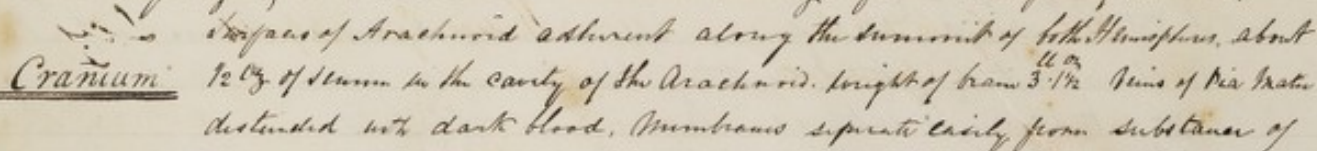 Surfaces of Arachnoid adherent along the summit of both Hemispheres. about
Cranium 1/2 oz of serum in the cavity of the Arachnoid. weight of brain 3 lb 1 1/2 oz Veins of Pia Mater
distended with dark blood. Membranes separate easily from substance of